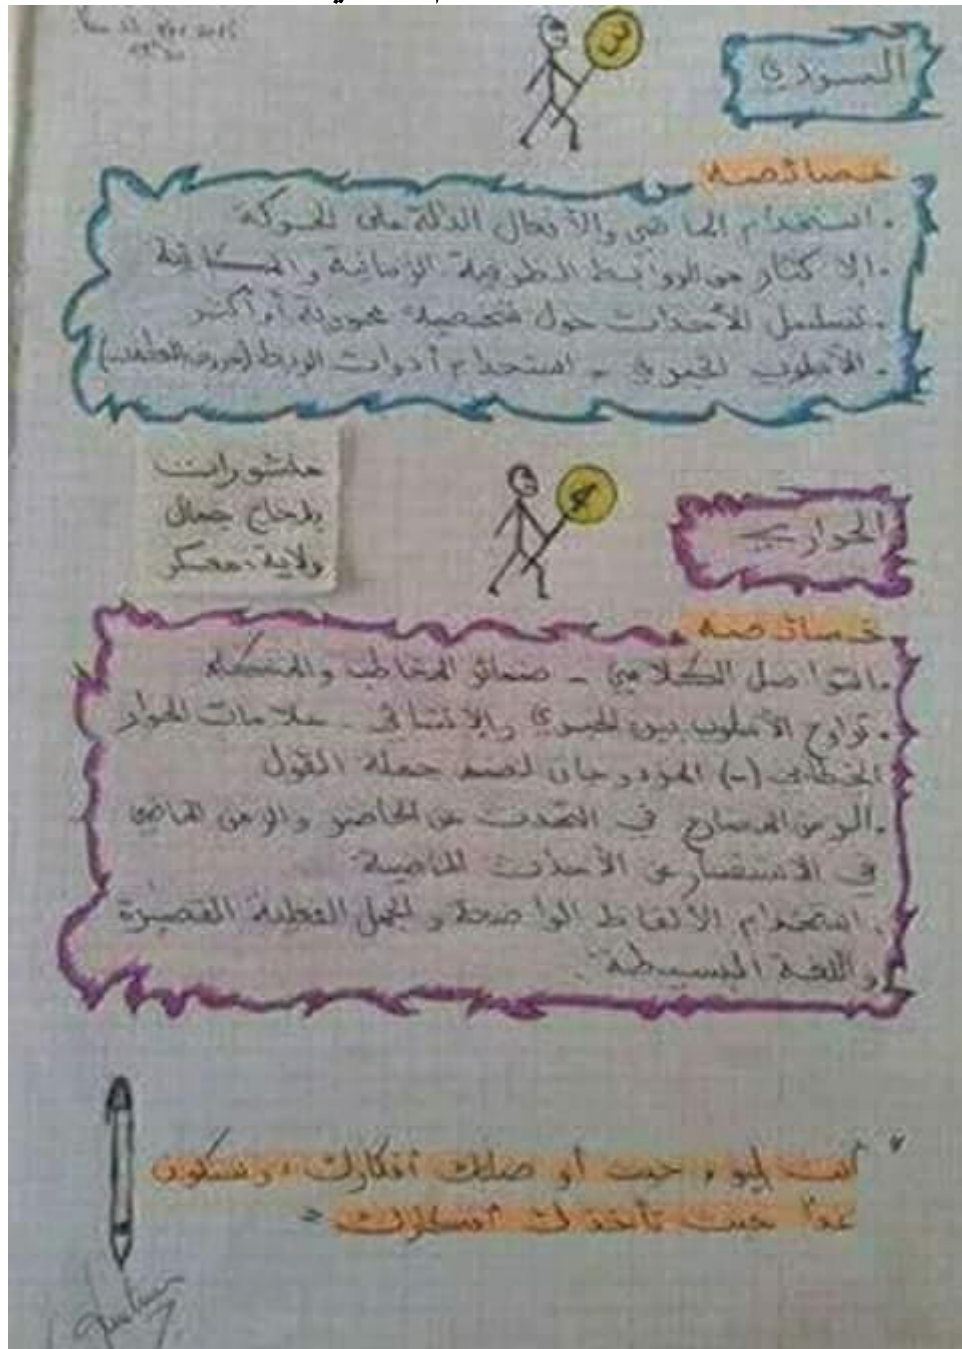 السردي
خصائصه
. استخدام الماضي والأفعال الدالة على الحركة
. الإكثار من الروابط الظرفية الزمانية والمكانية
. تسلسل الأحداث حول شخصية محورية أو أكثر
. الأسلوب الخبري - استخدام أدوات الربط (حروف العطف)
منشورات
بلحاج جمال
ولاية: معسكر
4
الحواري
خصائصه
. التواصل الكلامي - ضمائر المخاطب والمتكلم
. تراوح الأسلوب بين الخبري والإنشائي - علامات الحوار
(-) المزدوجان لصد جملة القول
. الزمن المضارع في التحدث عن الحاضر والزمن الماضي
في الاستفسار عن الأحداث الماضية
. استخدام الألفاظ الواضحة والجمل الفعلية القصيرة
واللغة البسيطة.
" أنت اليوم حيث أوصلتك أفكارك، وستكون
غدا حيث تأخذك أفكارك "